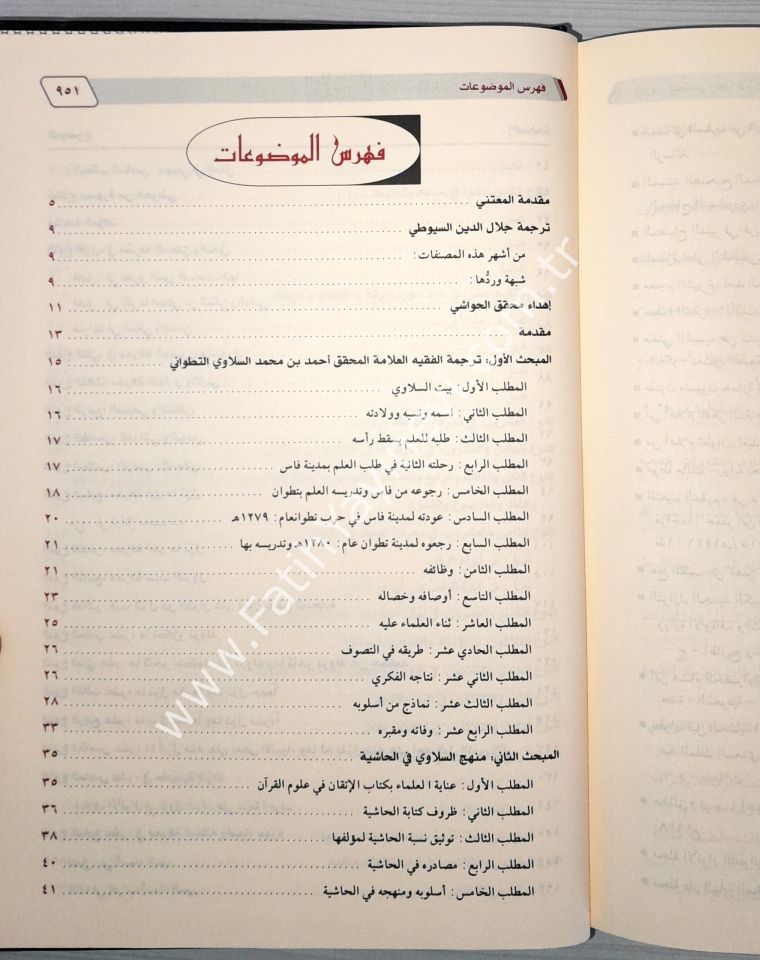 ٩٥١
فهرس الموضوعات
فهرس الموضوعات
مقدمة المعتني ٥
ترجمة جلال الدين السيوطي ٩
من أشهر هذه المصنفات : ٩
شبهة وردُّها : ٩
إهداء محقق الحواشي ١١
مقدمة ١٣
المبحث الأول: ترجمة الفقيه العلامة المحقق أحمد بن محمد السلاوي التطواني ١٥
المطلب الأول : بيت السلاوي ١٦
المطلب الثاني : اسمه ونسبه وولادته ١٦
المطلب الثالث : طلبه للعلم بسقط رأسه ١٧
المطلب الرابع : رحلته الثانية في طلب العلم بمدينة فاس ١٧
المطلب الخامس : رجوعه من فاس وتدريسه العلم بتطوان ١٨
المطلب السادس : عودته لمدينة فاس في حرب تطوانعام : ١٢٧٩هـ ٢٠
المطلب السابع : رجعوه لمدينة تطوان عام : ١٢٨٠هـ وتدريسه بها ٢١
المطلب الثامن : وظائفه ٢١
المطلب التاسع : أوصافه وخصاله ٢٣
المطلب العاشر : ثناء العلماء عليه ٢٥
المطلب الحادي عشر : طريقه في التصوف ٢٦
المطلب الثاني عشر : نتاجه الفكري ٢٦
المطلب الثالث عشر : نماذج من أسلوبه ٢٨
المطلب الرابع عشر : وفاته ومقبره ٣٣
المبحث الثاني: منهج السلاوي في الحاشية ٣٥
المطلب الأول : عناية ا لعلماء بكتاب الإتقان في علوم القرآن ٣٥
المطلب الثاني : ظروف كتابة الحاشية ٣٦
المطلب الثالث : توثيق نسبة الحاشية لمؤلفها ٣٨
المطلب الرابع : مصادره في الحاشية ٤٠
المطلب الخامس : أسلوبه ومنهجه في الحاشية ٤١
www.Fatihyayinevi.com.tr